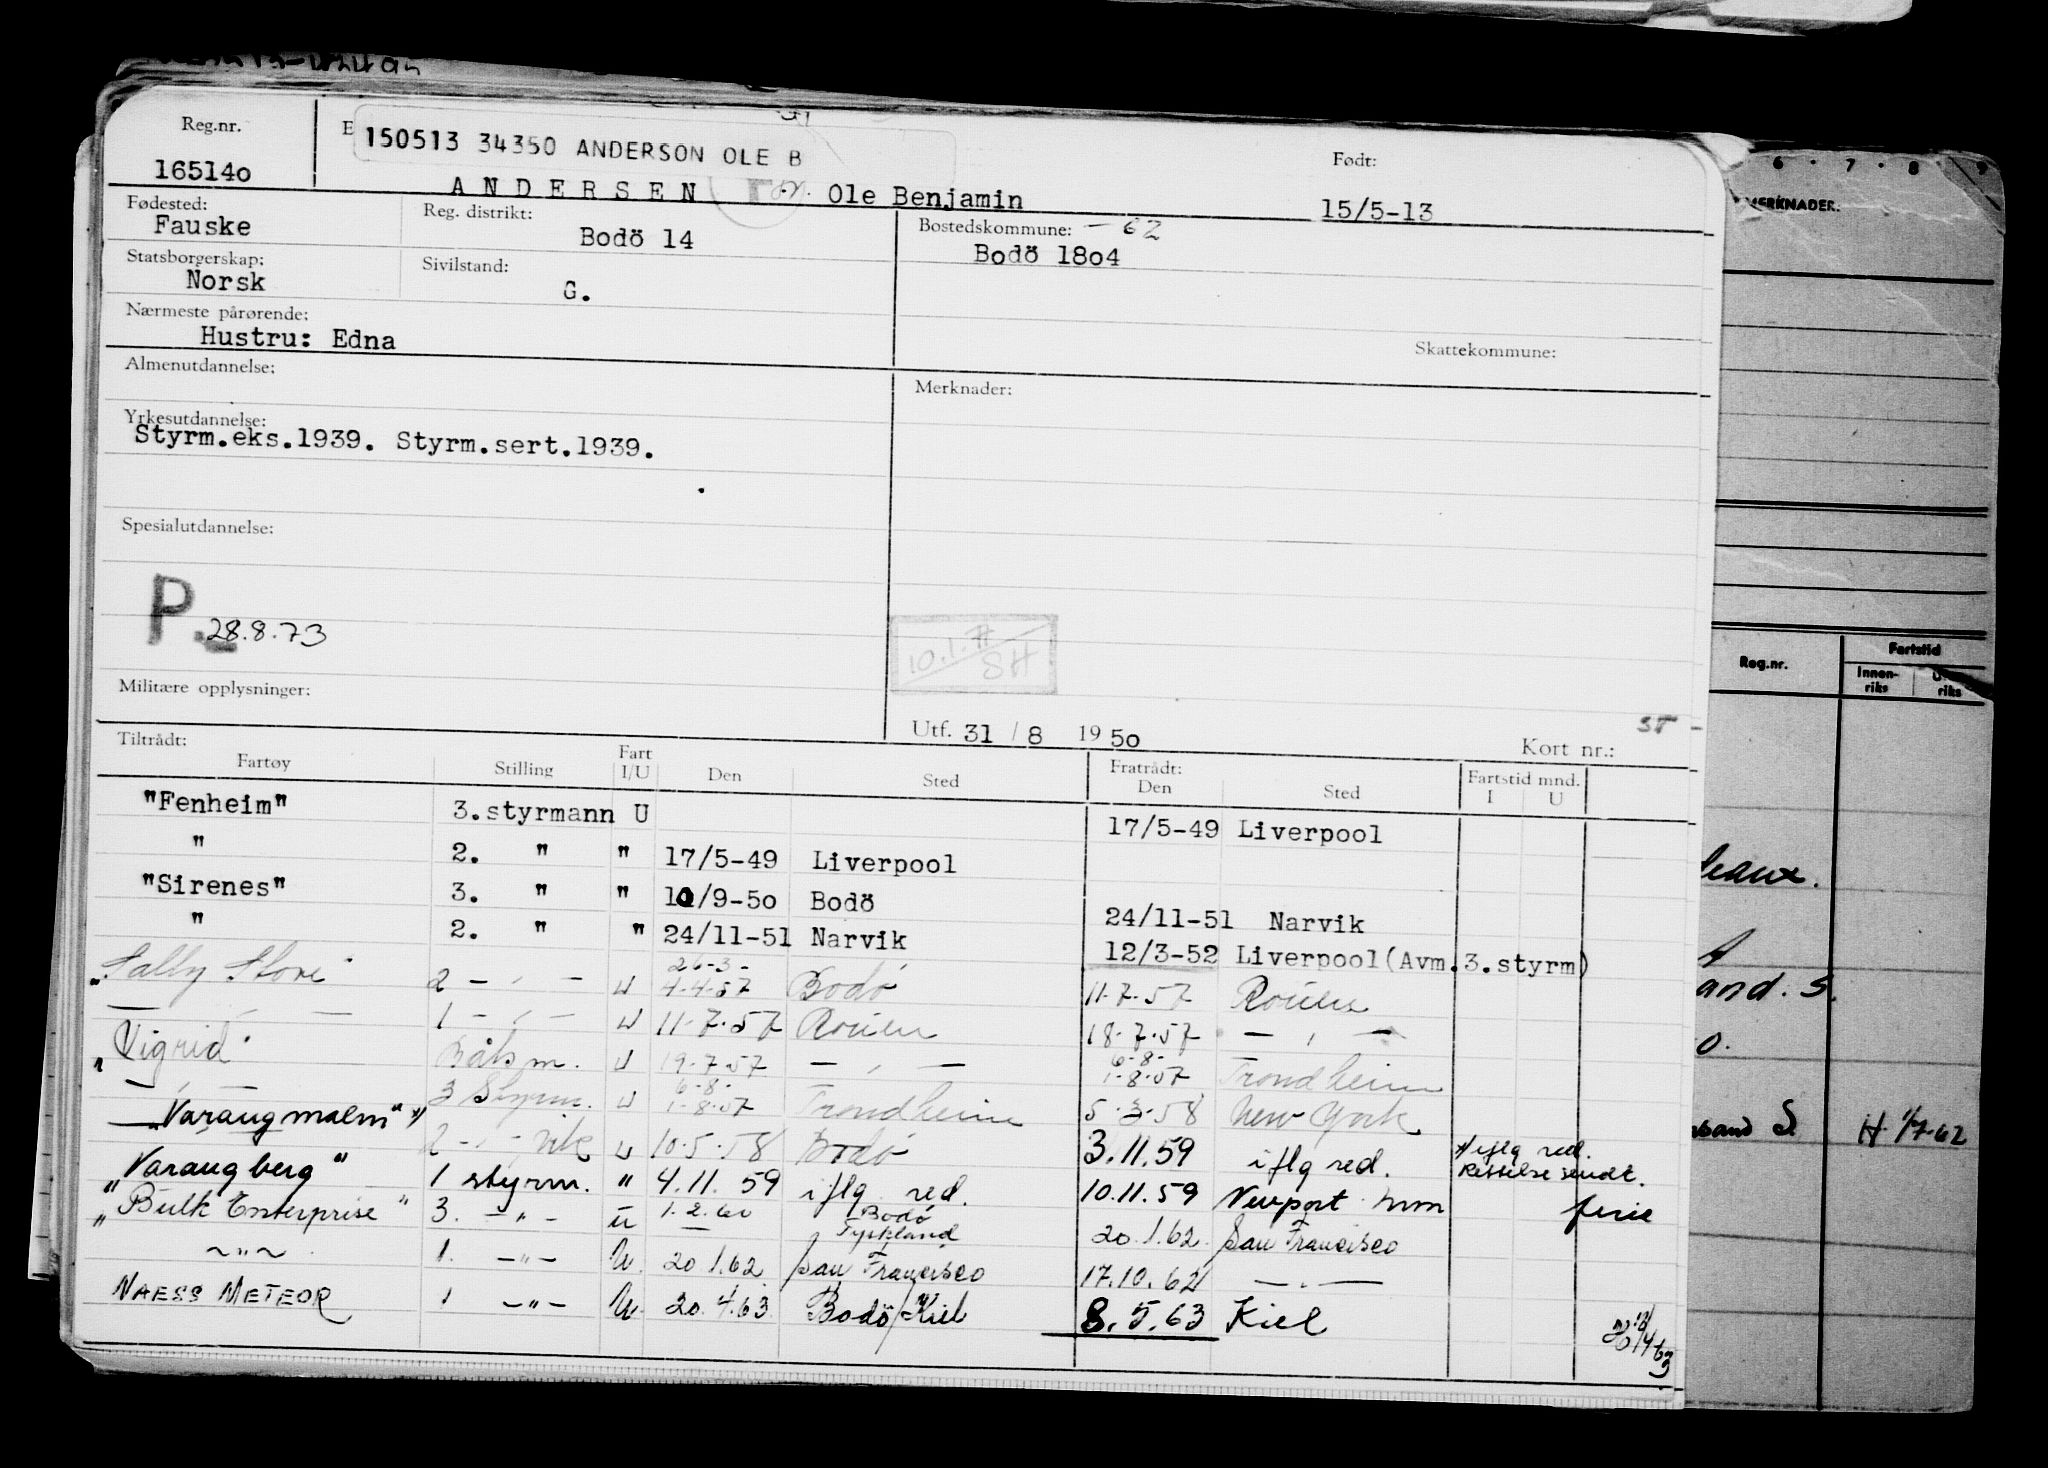 Reg.nr.
150513 34350 ANDERSON OLE B
Født:
16514o
ANDERSEN Ole Benjamin
15/5-13
Fødested:
Fauske
Reg. distrikt:
Bodö 14
Bostedskommune: -62
Bodö 18o4
Statsborgerskap:
Norsk
Sivilstand:
G.
Nærmeste pårørende:
Hustru: Edna
Skattekommune:
Almenutdannelse:
Merknader:
Yrkesutdannelse:
Styrm.eks.1939. Styrm.sert.1939.
Spesialutdannelse:
P. 28.8.73
SH
Militære opplysninger:
Utf. 31 / 8 19 5o
Kort nr.:
Tiltrådt:
Fartøy Stilling Fart I/U Den Sted Fratrådt: Den Sted Fartstid mnd. I U
"Fenheim" 3.styrmann U 17/5-49 Liverpool
" 2. " " 17/5-49 Liverpool
"Sirenes" 3. " " /9-5o Bodö 24/11-51 Narvik
" 2. " " 24/11-51 Narvik 12/3-52 Liverpool(Avm.3.styrm)
"Sally Stove" 2 - " - U 26-3- 4-4-57 Bodö 11-7-57 Rouen
- " - 1 - " - U 11-7-57 Rouen 18-7-57 - " -
"Vigrid" Båtsm. U 19-7-57 - " - 6-8- 1-8-57 Trondheim
- " - 3 Styrm. U 6-8- 1-8-57 Trondheim 5-3-58 New York
"Varangmalm" *) 2 - " - vik U 10-5-58 Bodö 3.11.59 iflg red. *) iflg red. Rettelse sendt.
"Varangberg" 1 styrm. " 4.11.59 iflg red. 10.11.59 Newport Mon ferie
"Bulk Enterprise" 3. - " - U 1.2.60 Bodö Tyskland 20.1.62 San Francisco
- " - 1. - " - U. 20.1.62 San Francisco 17.10.62 - " -
NAESS METEOR 1 - " - U. 20.4.63 Bodö/Kiel 8.5.63 Kiel
6 · 7 · 8 · 9
MERKNADER.
Reg.nr.
Fartstid
Innenriks
riks
and. S.
o.
sand S. H 1/7-62